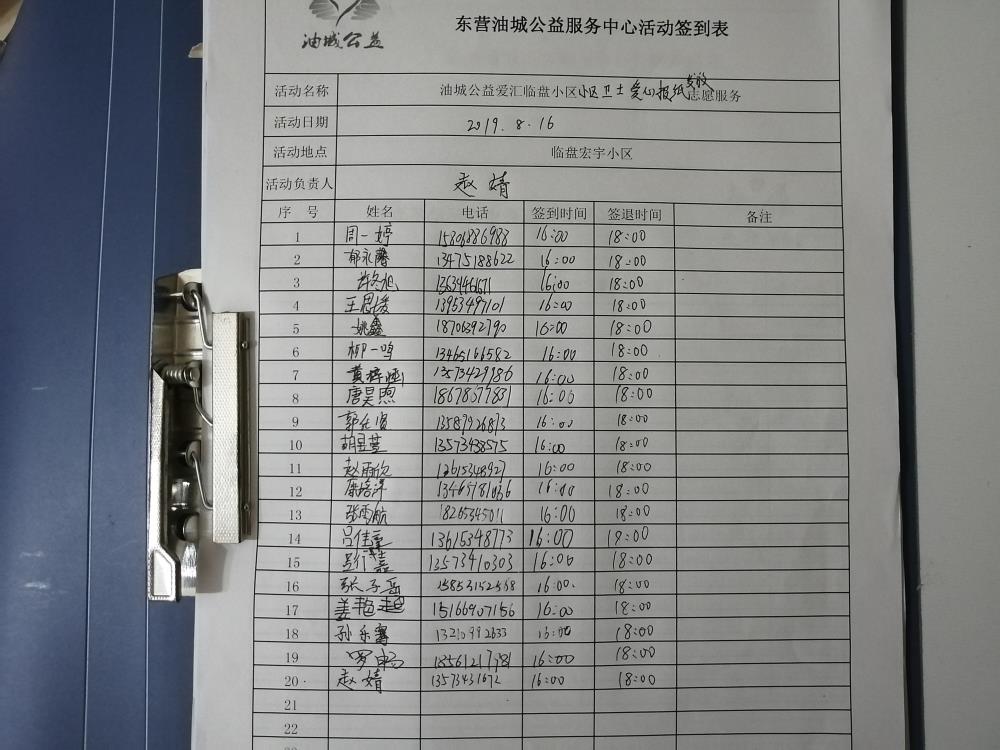 油城公益
东营油城公益服务中心活动签到表
活动名称 油城公益爱汇临盘小区小区卫士爱心报纸发放志愿服务
活动日期 2019.8.16
活动地点 临盘宏宇小区
活动负责人 赵婧
序号 姓名 电话 签到时间 签退时间 备注
1 周一婷 15806886988 16:00 18:00
2 郁永馨 13475188622 16:00 18:00
3 16:00 18:00
4 王思媛 13953497101 16:00 18:00
5 姚鑫 18706392790 16:00 18:00
6 柳一鸣 13465166582 16:00 18:00
7 黄梓涵 13573429986 16:00 18:00
8 唐昊煦 18678577831 16:00 18:00
9 13589926873 16:00 18:00
10 13573438575 16:00 18:00
11 赵雨欣 16:00 18:00
12 13465181036 16:00 18:00
13 张雨航 18265345011 16:00 18:00
14 13615348773 16:00 18:00
15 13573410303 16:00 18:00
16 张子岳 15853152568 16:00 18:00
17 姜艳超 15166907156 16:00 18:00
18 13210992633 16:00 18:00
19 罗畅 16:00 18:00
20 赵婧 13573431672 16:00 18:00
21
22